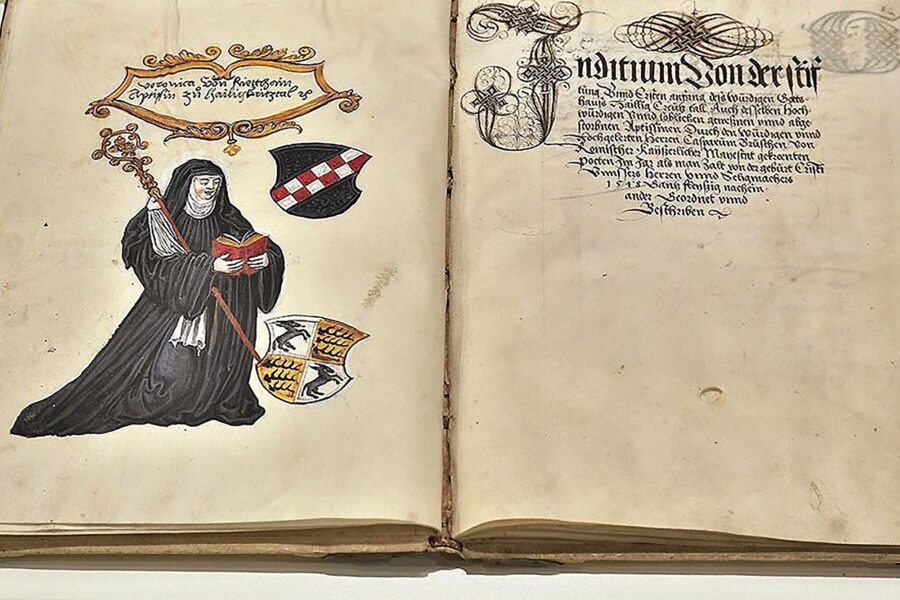 veronica von Riettheim
Aptisin zů hailig kritzcal ꝛc
Inditium Von der stif
tung Vnnd Ersten anfang deß würdigen Gotts
hauß Haillig Creütz tall Auch desselben Hoch
würdigen Vnnd loblichen gewesnen vnnd abge
storbnen Aptissinen Durch den würdigen vnnd
Hochgelerten Herren Casparum Brüschen Von
Römischer Kaÿserlicher Mayestat gekrönten
Poeten Im Jar als man Zalt von der gebürt Cristi
Vnnsers Herren vnnd Seligmachers
nachein
ander Geordnet vnnd
Beschriben